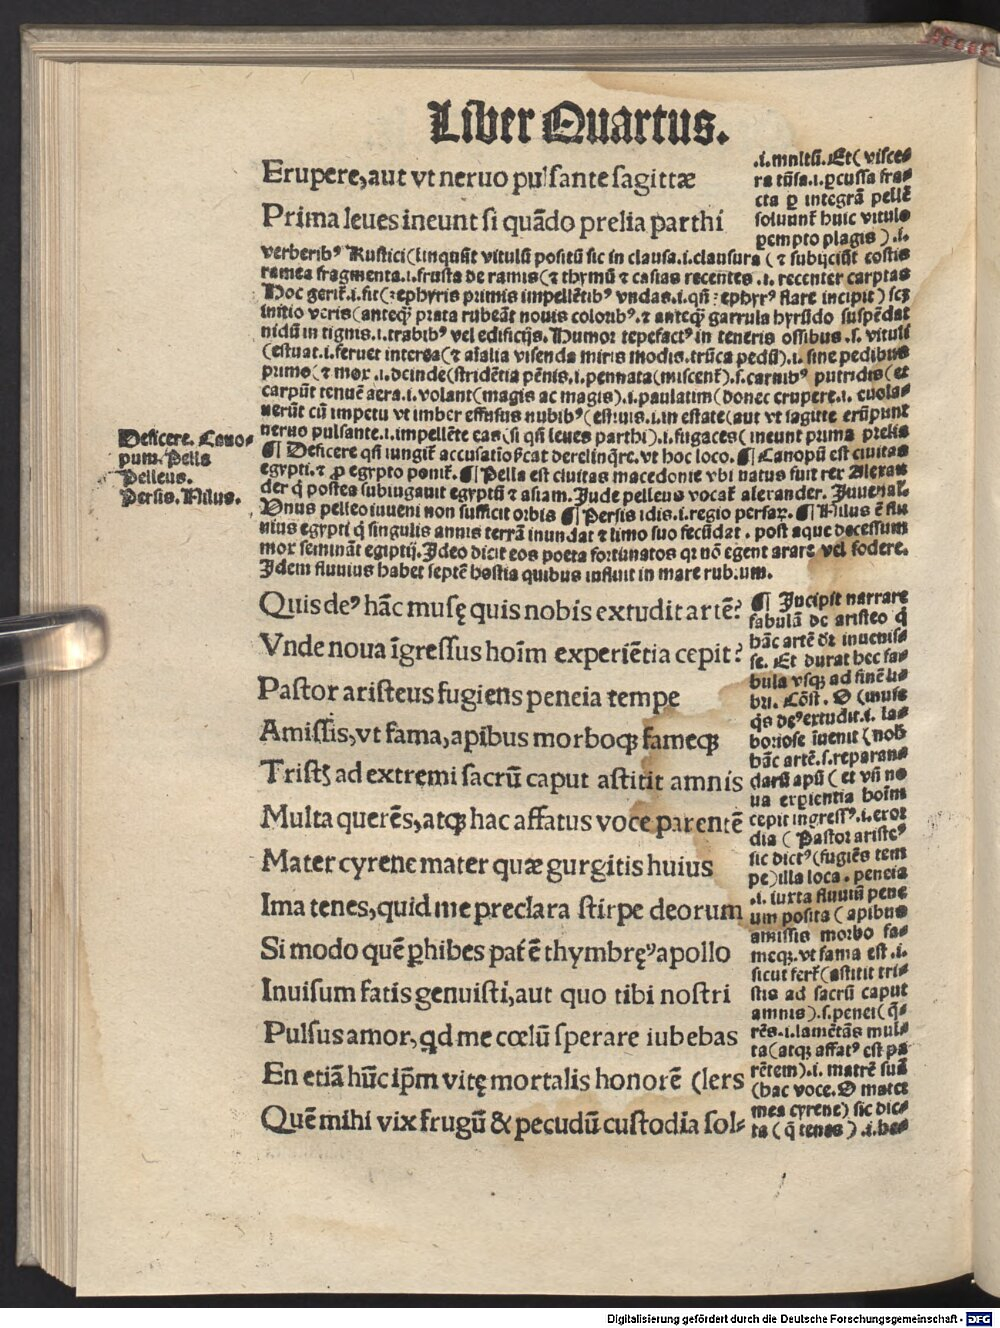 Liber Quartus.
Erupere, aut vt neruo pulsante sagittæ
Prima leues ineunt si quãdo prelia parthi
.i. mnltũ. Et( visce⸗
ra tũsa.i. ꝑcussa fra⸗
cta ꝑ integrã pellẽ
soluunt᷑ huic vitulo
pempto plagis ) .i.
verberibꝰ Rustici(linquũt vitulũ positũ sic in clausa.i.clausura ( ⁊ subijciũt costis
ramea fragmenta.i.frusta de ramis(⁊ thymũ ⁊ casias recentes .i. recenter carptas
Hoc gerit᷑.i.fit(zephyris primis impellẽtibꝰ vndas.i.qñ zephyrꝰ flare incipit) scꝫ
initio veris(anteqꝫ prata rubeãt nouis coloribꝰ.⁊ anteqꝫ garrula hyrũdo suspẽdat
nidũ in tignis.i.trabibꝰ vel edificijs. Humor tepefactꝰ in teneris ossibus .s. vituli
(estuat.i.feruet interea(⁊ aĩalia visenda miris modis.trũca pedũ).i. sine pedibus
primo(⁊ mox .i.deinde(stridẽtia pẽnis.i.pennata(miscent᷑).s.carnibꝰ putridis(et
carpũt tenuẽ aera.i. volant(magis ac magis).i.paulatim(donec erupere.i. euola⸗
uerũt cũ impetu vt imber effusus nubibꝰ(estiuis.i.in estate(aut vt sagitte erũpunt
neruo pulsante.i.impellẽte eas(si qñ leues parthi).i.fugaces( ineunt prima prelia
¶ Deficere qñ iungit᷑ accusatiõ scat derelinq̃re.vt hoc loco. ¶ Canopũ est ciuitas
egypti.⁊ ꝓ egypto ponit᷑. ¶ Pella est ciuitas macedonie vbi natus fuit rex Alexan
der q̇ postea subiugauit egyptũ ⁊ asiam. Inde pelleus vocat᷑ alexander. Iuuenal.
Vnus pelleo iuueni non sufficit orbis ¶ Persis idis.i.regio persaꝝ. ¶ Nilus ẽ flu
uius egypti q̇ singulis annis terrã inundat ⁊ limo suo fecũdat . post aque decessum
mox seminãt egiptij. Ideo dicit eos poeta fortunatos qꝛ nõ egent arare vel fodere.
Idem fluuius habet septẽ hostia quibus influit in mare rubrum.
Deficere. Cano⸗
pum. Pella
Pelleus.
Persis. Nilus.
Quis deꝰ hãc musę quis nobis extudit artẽ?
Vnde noua ĩgressus hoĩm experiẽtia cepit?
Pastor aristeus fugiens peneia tempe
Amissis, vt fama, apibus morboqꝫ fameqꝫ
Tristꝭ ad extremi sacrũ caput astitit amnis
Multa querẽs, atqꝫ hac affatus voce parentẽ
Mater cyrene mater quæ gurgitis huius
Ima tenes, quid me preclara stirpe deorum
Si modo quẽ ꝑhibes pat᷑ ẽ thymbręꝰ apollo
Inuisum fatis genuisti, aut quo tibi nostri
Pulsus amor, qd me cœlũ sperare iubebas
En etiã hũc ip̃m vitę mortalis honorẽ (lers
Quẽ mihi vix frugũ & pecudũ custodia sol⸗
¶ Incipit narrare
fabulã de aristeo q̇
hãc artẽ dr̃ inuenis⸗
se. Et durat hec fa⸗
bula vsqꝫ ad finẽ li⸗
bri. Cõst. O (muse
q̇s deꝰ extudit.i. la⸗
boriose ĩuenit (nob̃
hãc artẽ.s.reparan⸗
darũ apũ ( et vñ no
ua experientia hoĩm
cepit ingressꝰ.i.exor
dia ( Pastor aristeꝰ
sic dictꝰ (fugiẽs tem
pe)illa loca . peneia
.i. iuxta fluuiũ pene
um posita ( apibus
amissis morbo fa⸗
meqꝫ.vt fama est .i.
sicut fert᷑(astitit tri⸗
stis ad sacrũ caput
amnis).s.penei(q̃⸗
rẽs.i.lamẽtãs mul⸗
ta(atqꝫ affatꝰ est pa
rẽtem).i. matrẽ suã
(hac voce. O mater
mea cyrene) sic dic⸗
ta ( q̃ tenes ) .i.ha⸗
Digitalisierung gefördert durch die Deutsche Forschungsgemeinschaft - DFG